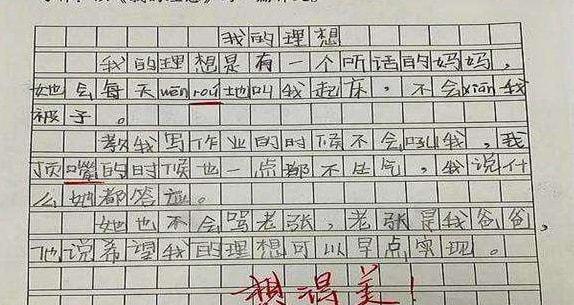 我的理想
我的理想是有一个听话的妈妈，
她会每天wēn róu地叫我起床，不会xiān我
被子。
教我写作业的时候不会吼我，我
顶嘴的时候也一点都不生气，我说什
么她都答应。
她也不会骂老张，老张是我爸爸，
他说希望我的理想可以早点实现。
想得美！